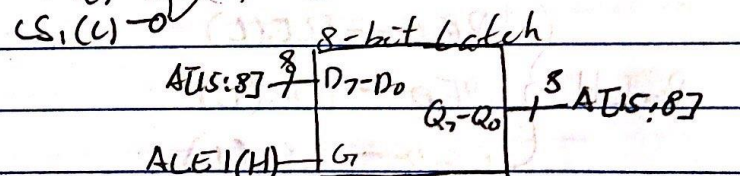 CS₁(L)
8-bit Latch
8
A[15:8] D₇-D₀
8
Q₇-Q₀ A[15:8]
ALE1(H) G